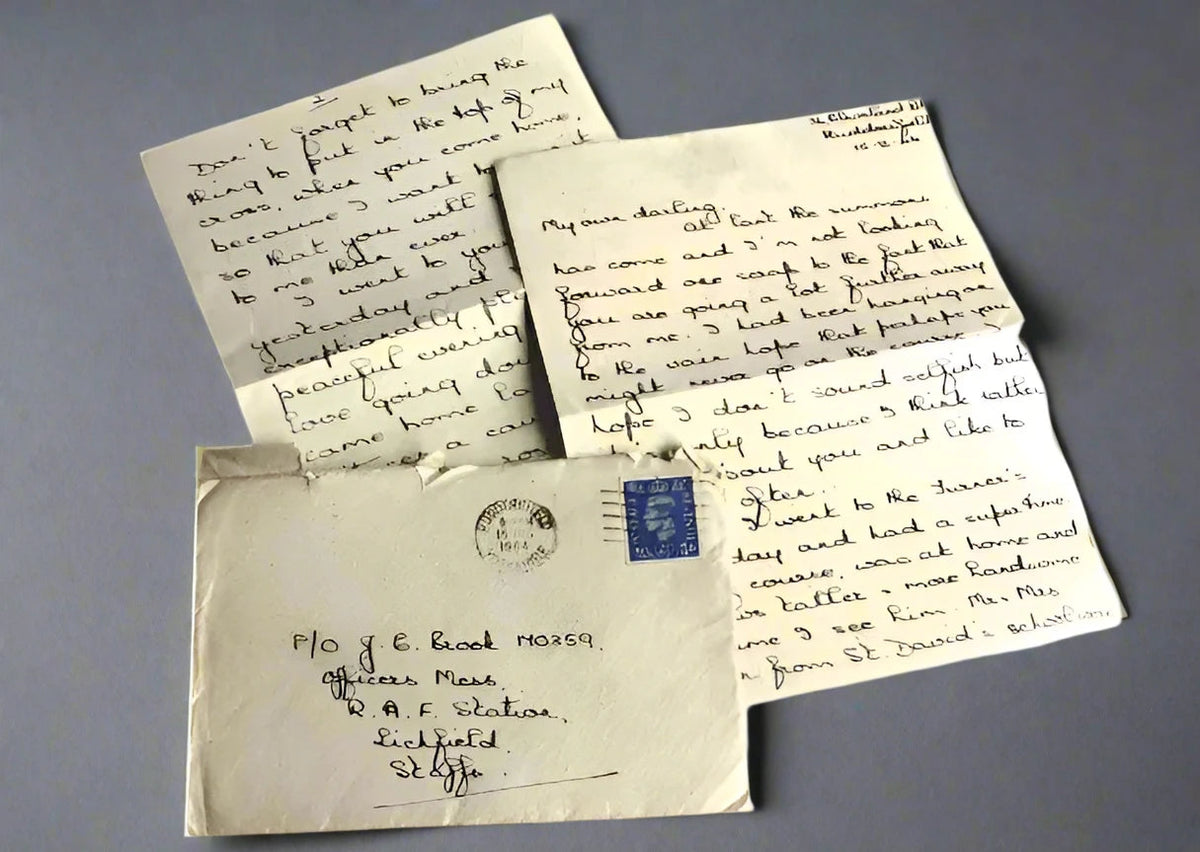 Don't forget to bring the
thing to put in the top of my
cross, when you come home,
because I want to
so that you will
to me than ever.
I went to your
yesterday and
exceptionally
peaceful evening
love going
came home
a
My own darling,
at last the summons
has come and I'm not looking
forward one scrap to the fact that
you are going a lot further away
from me. I had been hanging on
to the vain hope that perhaps you
might never go on the course. I
hope I don't sound selfish but
only because I think rather
about you and like to
often.
I went to the Turner's
day and had a super time.
course, was at home and
taller & more handsome
time I see him. Mr. Mrs
from St. David's school
HUDDERSFIELD
1944
YORKSHIRE
P/O J. E. Brook
Officers Mess,
R. A. F. Station,
Lichfield.
Staffs.